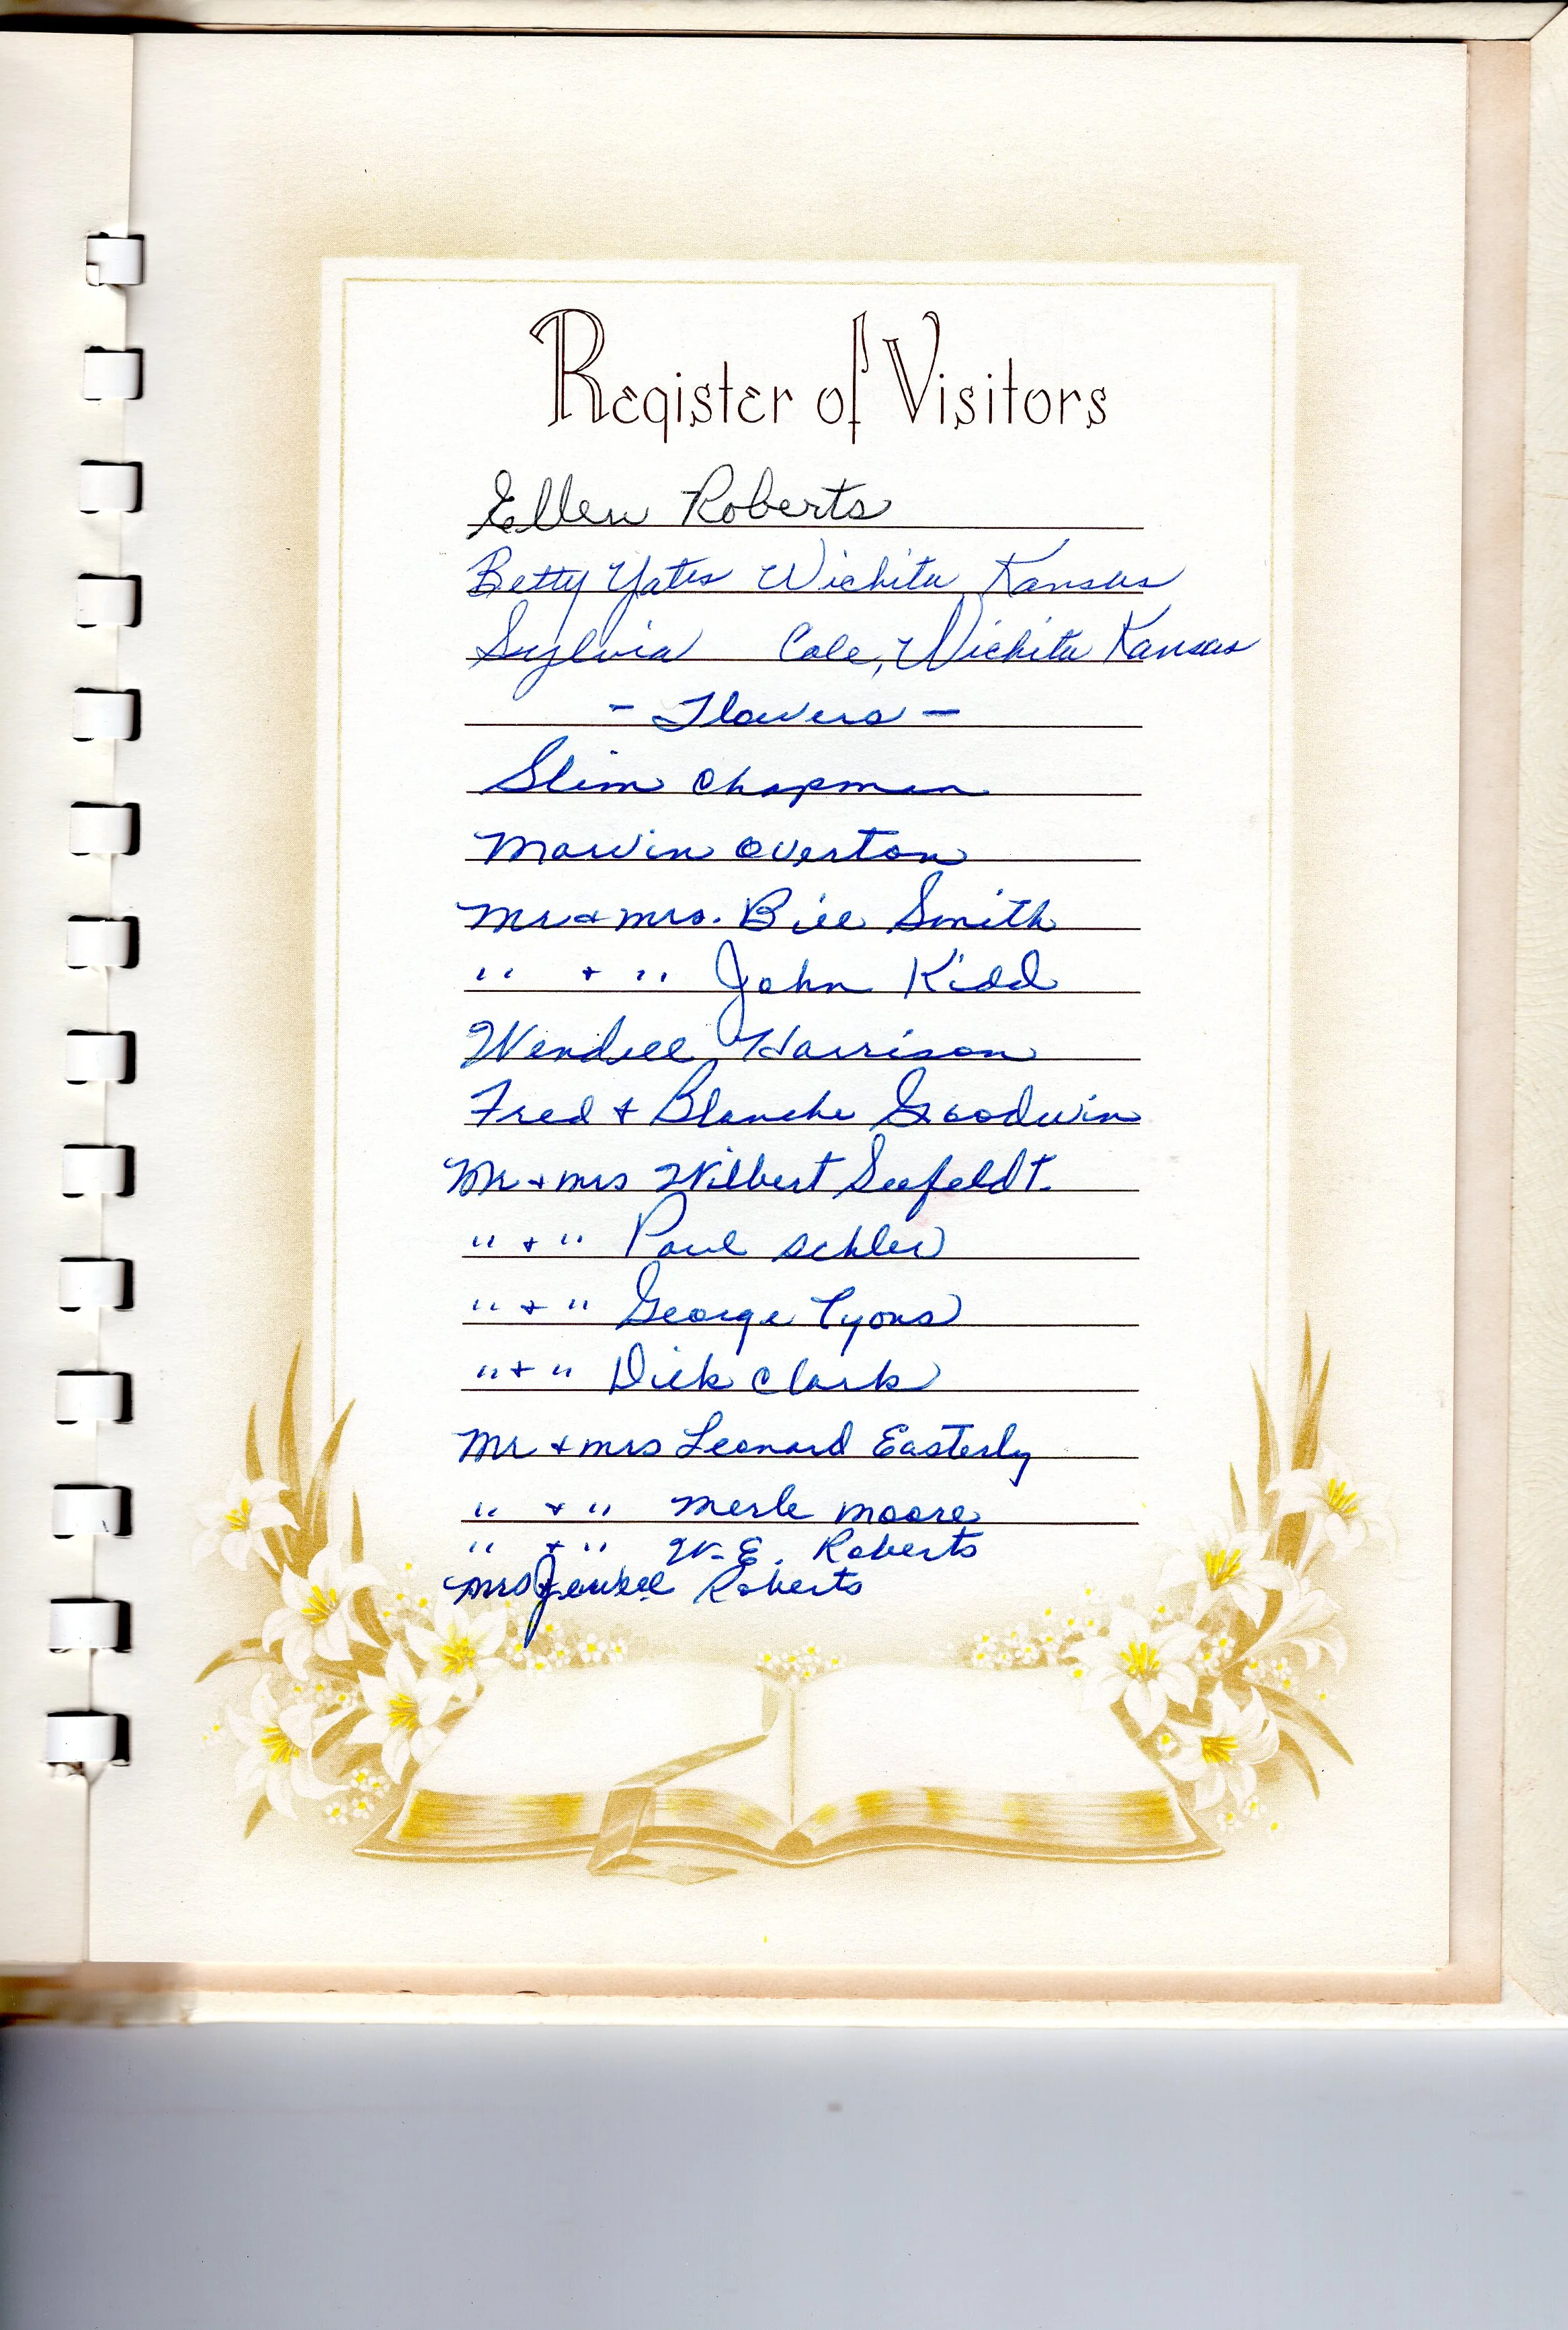 Register of Visitors
Ellen Roberts
Betty Yates Wichita Kansas
Sylvia Cole, Wichita Kansas
- Flowers -
Slim Chapman
Marvin Overton
Mr & Mrs. Bill Smith
" + " John Kidd
Wendell Harrison
Fred + Blanche Goodwin
Mr + Mrs Wilbert Seefeldt.
" + " Paul
" + " George Lyons
" + " Dick Clark
Mr + Mrs Leonard Easterly
" + " Merle Moore
" + " W.E. Roberts
Mrs Roberts